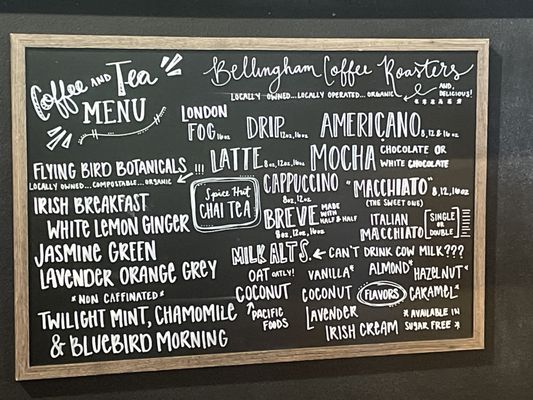 Coffee AND Tea
MENU
Bellingham Coffee Roasters
LOCALLY OWNED...LOCALLY OPERATED...ORGANIC
AND,
DELICIOUS!
LONDON
FOG 16oz
DRIP 12oz, 16oz
AMERICANO 8, 12 & 16oz
LATTE 8oz, 12oz, 16oz
MOCHA CHOCOLATE OR
WHITE CHOCOLATE
FLYING BIRD BOTANICALS !!!
LOCALLY OWNED...COMPOSTABLE...ORGANIC
IRISH BREAKFAST
WHITE LEMON GINGER
JASMINE GREEN
LAVENDER ORANGE GREY
*NON CAFFINATED*
TWILIGHT MINT, CHAMOMILE
& BLUEBIRD MORNING
Spice Hut
CHAI TEA
CAPPUCCINO
8oz, 12oz
"MACCHIATO" 8, 12, 16oz
(THE SWEET ONE)
BREVE MADE
WITH
HALF & HALF
8oz, 12oz, 16oz
ITALIAN
MACCHIATO
SINGLE
OR
DOUBLE
MILK ALTS. CAN'T DRINK COW MILK???
OAT OATLY!
COCONUT
PACIFIC
FOODS
VANILLA* ALMOND* HAZELNUT*
COCONUT FLAVORS CARAMEL*
LAVENDER
IRISH CREAM
* AVAILABLE IN
SUGAR FREE *